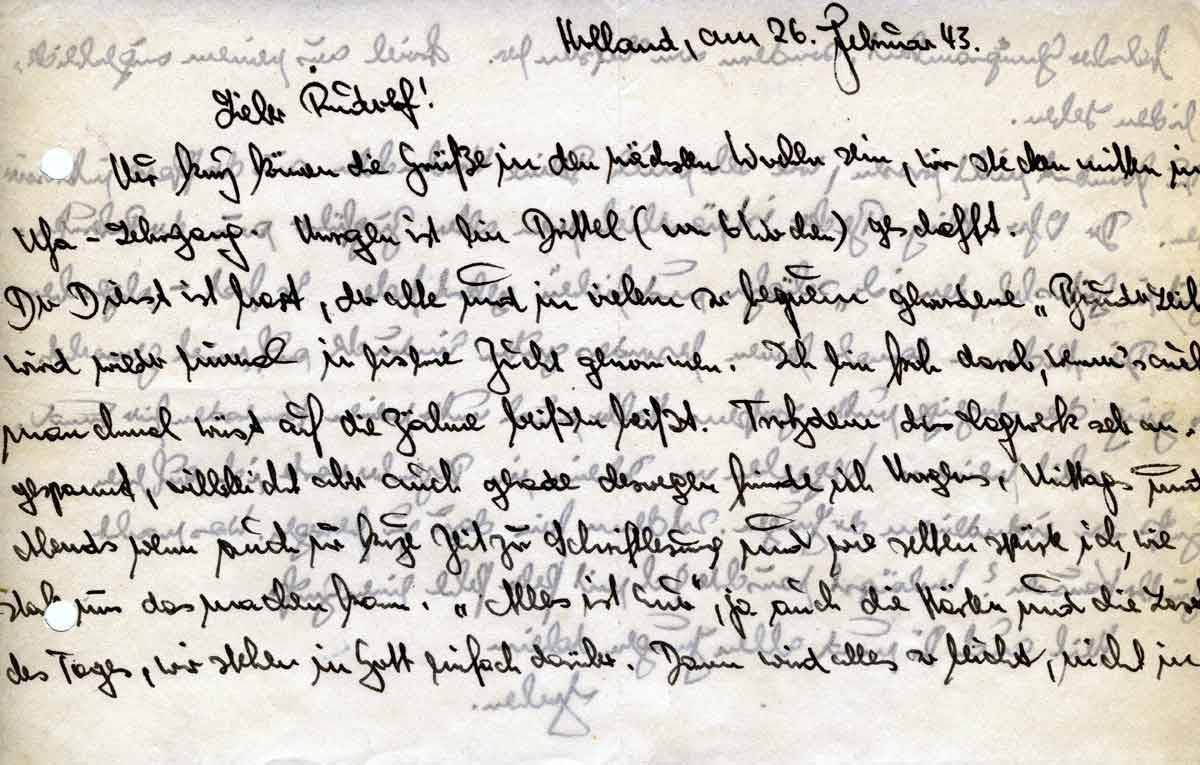 Holland, am 26. Februar 43.
Lieber Rudolf!
Nur kurz können die Grüße in den nächsten Wochen sein, wir stecken mitten im
Ufa-Lehrgang. Morgen ist ein Drittel (von 6 Wochen) geschafft.
Der Dienst ist hart, der alte und in vielem so bequem gewordene
wird wieder einmal in eiserne Zucht genommen. Ich bin froh darob, wenn's auch
manchmal wüst auf die Zähne beißen heißt. Trotzdem das Tagwerk
gespannt, vielleicht aber auch gerade deswegen finde ich Morgens, Mittags und
Abends wenn auch nur kurze Zeit zur Schriftlesung und wie selten spüre ich, wie
stark uns das machen kann. „Alles ist Euer", ja auch die Härten und die
des Tages, wir stehen in Gott einfach darüber. Dann wird alles so leicht, nicht im